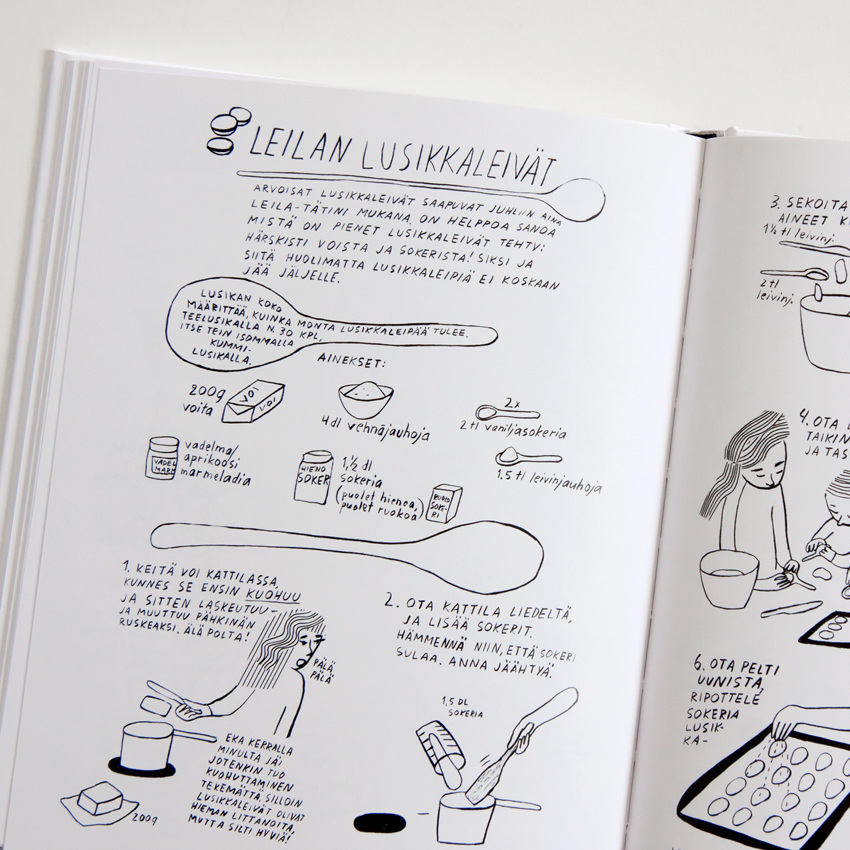 LEILAN LUSIKKALEIVÄT
ARVOISAT LUSIKKALEIVÄT SAAPUVAT JUHLIIN AINA
LEILA-TÄTINI MUKANA. ON HELPPOA SANOA
MISTÄ ON PIENET LUSIKKALEIVÄT TEHTY:
HÄRSKISTI VOISTA JA SOKERISTA! SIKSI JA
SIITÄ HUOLIMATTA LUSIKKALEIPIÄ EI KOSKAAN
JÄÄ JÄLJELLE.
LUSIKAN KOKO
MÄÄRITTÄÄ, KUINKA MONTA LUSIKKALEIPÄÄ TULEE.
TEELUSIKALLA N. 30 KPL,
ITSE TEIN ISOMMALLA
KUMMI-
LUSIKALLA.
AINEKSET:
200g
voita
VOI
VOI
4 dl vehnäjauhoja
2x
2 tl vaniljasokeria
vadelma/
aprikoosi
marmeladia
VADEL
MARM
HIENO
SOKER
1,½ dl
sokeria
(puolet hienoa,
puolet ruokoa)
RUOKO
SOKE-
RI
1,5 tl leivinjauhoja
1. KEITÄ VOI KATTILASSA,
KUNNES SE ENSIN KUOHUU
JA SITTEN LASKEUTUU
JA MUUTTUU PÄHKINÄN
RUSKEAKSI. ÄLÄ POLTA!
PÄLÄ,
PÄLÄ
EKA KERRALLA
MINULTA JÄI
JOTENKIN TUO
KUOHUTTAMINEN
TEKEMÄTTÄ. SILLOIN
LUSIKKALEIVÄT OLIVAT
HIEMAN LITTANOITA,
MUTTA SILTI HYVIÄ!
200g
2. OTA KATTILA LIEDELTÄ,
JA LISÄÄ SOKERIT.
HÄMMENNÄ NIIN, ETTÄ SOKERI
SULAA. ANNA JÄÄHTYÄ.
1,5 DL
SOKERIA
3. SEKOITA
AINEET K
1½ tl leivinj.
2 tl
leivinj.
4. OTA L
TAIKIN
JA TAS
6. OTA PELTI
UUNISTA,
RIPOTTELE
SOKERIA
LUSIK-
KA-